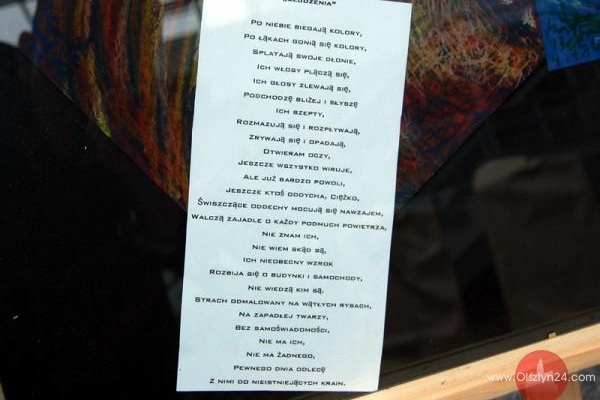 Po niebie biegają kolory,
Po łąkach gonią się kolory,
Splatają swoje dłonie,
Ich włosy plączą się,
Ich głosy zlewają się,
Podchodzę bliżej i słyszę
Ich szepty,
Rozmazują się i rozpływają,
Zrywają się i opadają,
Otwieram oczy,
Jeszcze wszystko wiruje,
Ale już bardzo powoli,
Jeszcze ktoś oddycha, ciężko,
Świszczące oddechy mocują się nawzajem,
Walczą zajadle o każdy podmuch powietrza,
Nie znam ich,
Nie wiem skąd są,
Ich nieobecny wzrok
Rozbija się o budynki i samochody,
Nie wiedzą kim są,
Strach odmalowany na wątłych rysach,
Na zapadłej twarzy,
Bez samoświadomości,
Nie ma ich,
Nie ma żadnego,
Pewnego dnia odlecę
Z nimi do nieistniejących krain.
www.Olsztyn24.com